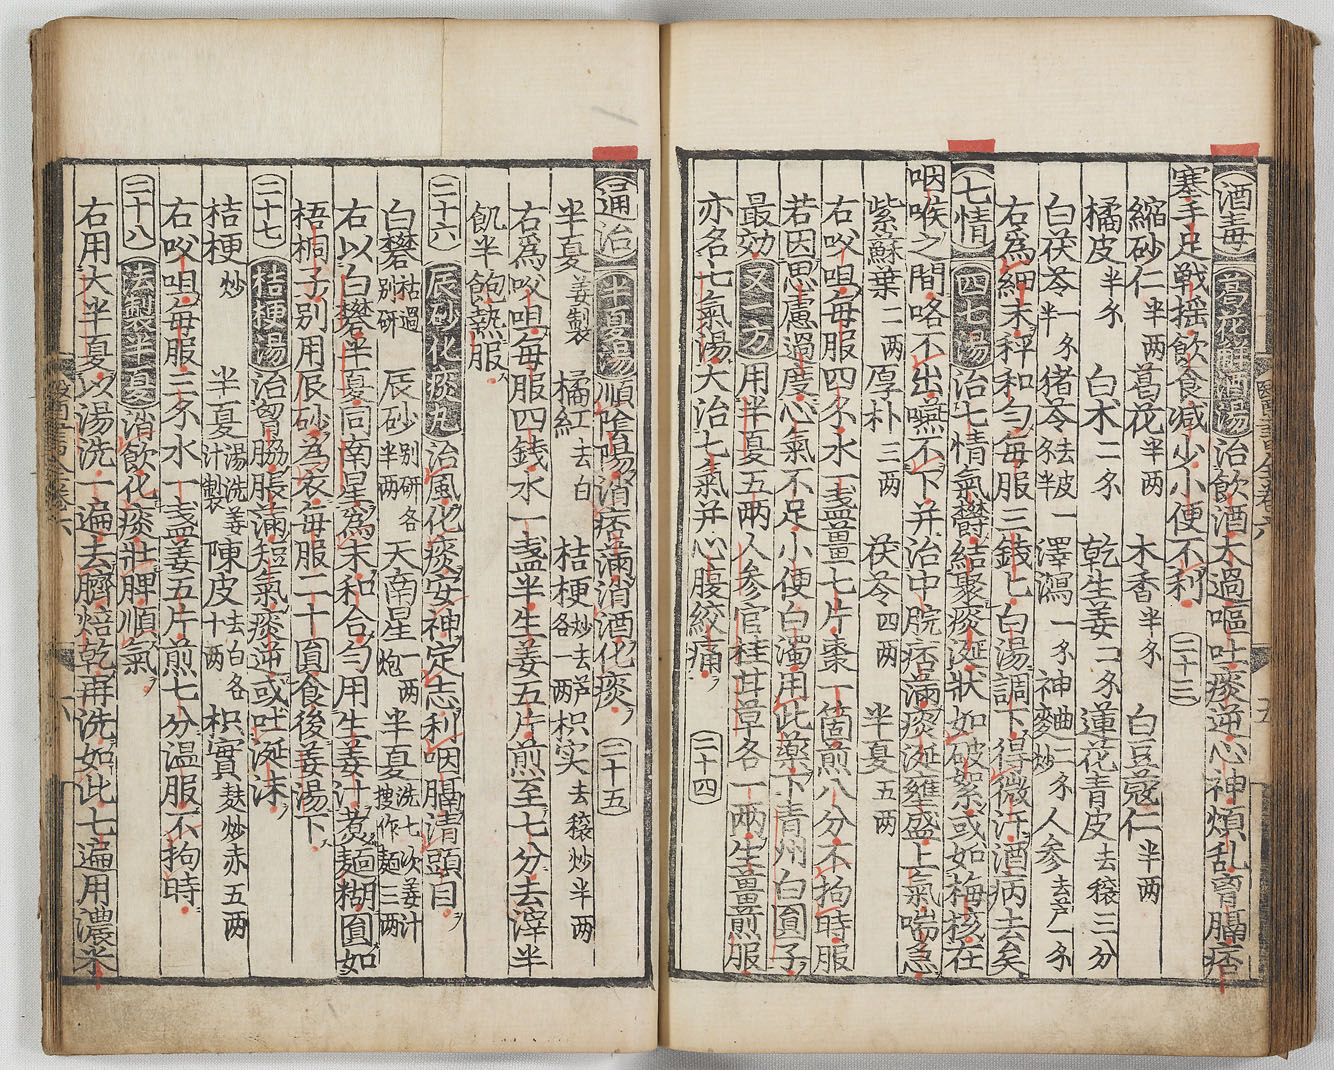 酒毒 葛花解酒湯 治飲酒太過嘔吐痰逆心神煩乱胷膈痞
塞手足戦揺飲食減少小便不利 二十三
縮砂仁半両 葛花半両 木香半匁 白豆蔻仁半両
橘皮半匁 白朮二匁 乾生姜二匁 蓮花青皮去穣三分
白茯苓一匁半 猪苓去皮一匁半 澤瀉一匁 神曲二匁麥炒 人参去芦一匁
右為細末秤和匀毎服三銭匕白湯調下得微汗酒病去矣
七情 四七湯 治七情氣欝結聚痰涎狀如破絮或如梅核在
咽喉之間咯不出嚥不下并治中脘痞滿痰涎壅盛上氣喘急
紫蘇葉二両 厚朴三両 茯苓四両 半夏五両
右㕮咀毎服四匁水一盞畺七片棗一箇煎八分不拘時服
若因思慮過度心氣不足小便白濁用此藥下青州白圓子
最効 又一方 用半夏五両人参官桂甘草各一両生畺煎服
亦名七氣湯大治七氣并心腹絞痛 二十四
通治 半夏湯 順陰陽消痞滿消酒化痰 二十五
半夏姜製 橘紅去白 桔梗炒去芦各一両 枳实去穣炒半両
右為㕮咀毎服四銭水一盞半生姜五片煎至七分去滓半
飢半飽熱服
二十六 辰砂化痰丸 治風化痰安神定志利咽膈清頭目
白礬枯過別研 辰砂別研各半両 天南星一両炮 半夏洗七次姜汁搜作麺三両
右以白礬半夏同南星為末和合匀用生姜汁煮麺糊圓如
梧桐子別用辰砂為衣毎服二十圓食後姜湯下
二十七 桔梗湯 治胷脇脹滿短氣痰逆或吐涎沫
桔梗炒 半夏湯洗姜汁製 陳皮去白各十両 枳實麸炒赤五両
右㕮咀毎服二匁水一盞姜五片煎七分温服不拘時
二十八 法製半夏 消飲化痰壮脾順氣
右用大半夏以湯洗一遍去臍焙乾再洗如此七遍用濃米